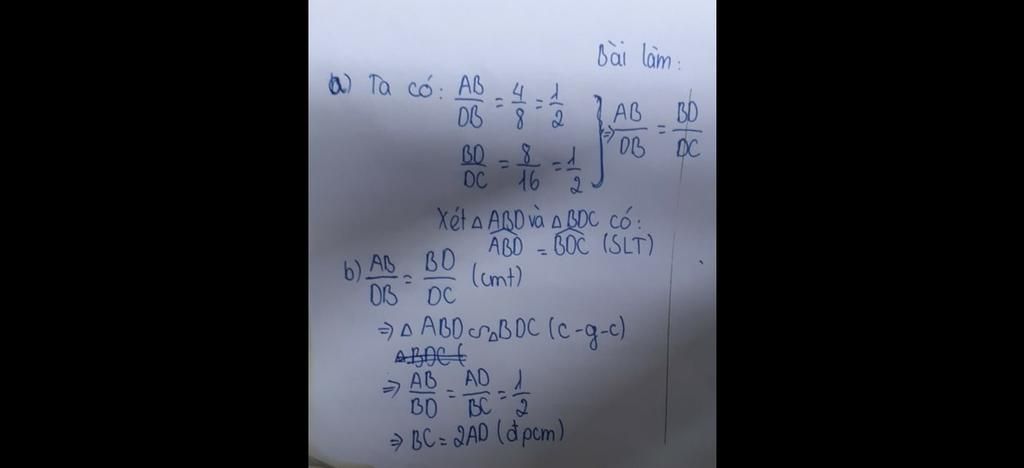 Bài làm:
a) Ta có: AB/DB = 4/8 = 1/2
BD/DC = 8/16 = 1/2 } ⇒ AB/DB = BD/DC
Xét △ ABD và △ BDC có:
ABD = BDC (SLT)
b) AB/DB = BD/DC (cmt)
⇒ △ ABD ∽ △ BDC (c-g-c)
△ BDC (
⇒ AB/BD = AD/BC = 1/2
⇒ BC = 2AD (đpcm)